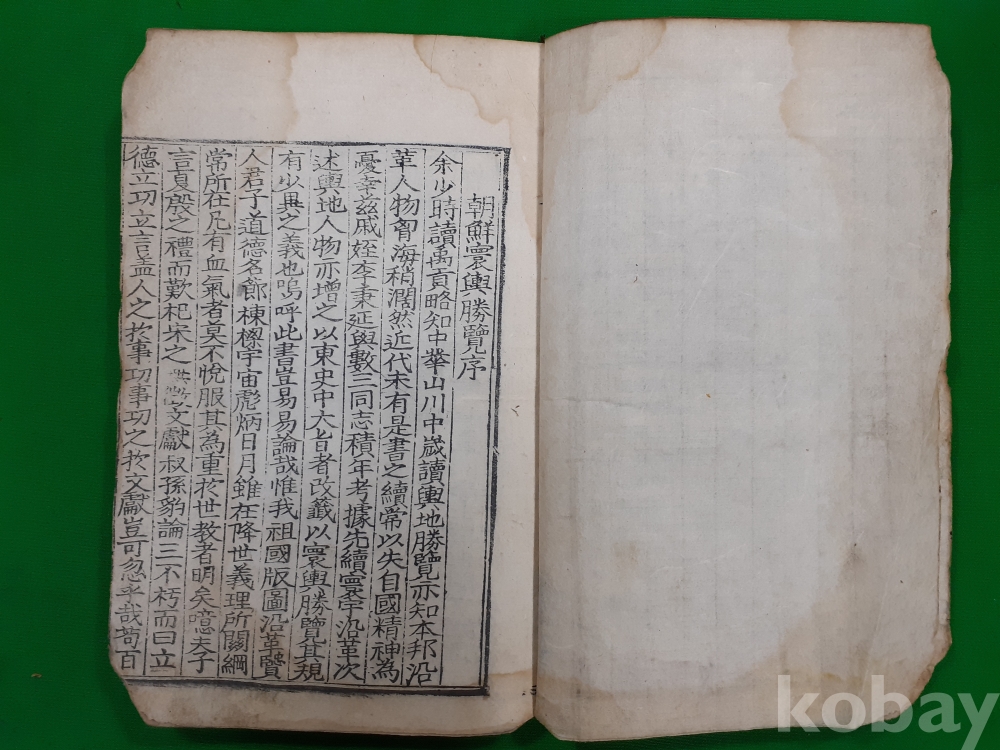 朝鮮寰輿勝覽序
余少時讀禹貢略知中華山川中歲讀輿地勝覽亦知本邦沿
革人物胷海稍濶然近代未有是書之續常以失自國精神為
憂幸玆戚姪李秉延與數三同志積年考據先續寰宇沿革次
述輿地人物亦增之以東史中大旨者改籤以寰輿勝覽其規
有少異之義也嗚呼此書豈易易論哉惟我祖國版圖沿革賢
人君子道德名節棟樑宇宙彪炳日月雖在降世義理所關綱
常所在凡有血氣者莫不悅服其為重於世教者明矣噫夫子
言夏殷之禮而歎杞宋之 文獻叔孫豹論三不朽而曰立
德立功立言盖人之於事功事功之於文獻豈可忽乎哉苟百
kobay